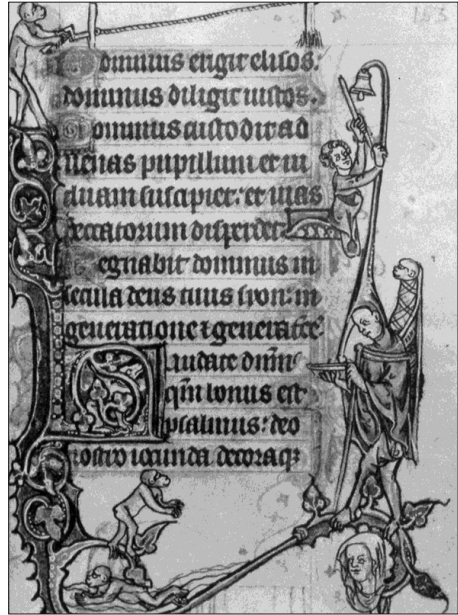 Dominus erigit elisos:
dominus diligit iustos.
Dominus custodit ad
uenas pupillum et ui
duam suscipiet: et uias
peccatorum disperdet
Regnabit dominus in
secula deus tuus syon: in
generatione ⁊ generat̄oē
Laudate dn̄m
qm̄ bonus est
psalmus: deo
nostro iocunda decoraqꝫ